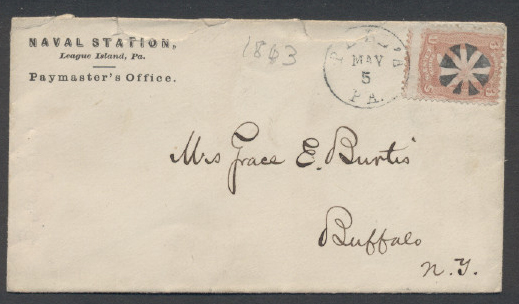 NAVAL STATION,
League Island, Pa.
Paymaster's Office.
1863
PHILA'A
MAY
5
PA.
Mrs Grace E. Burtis
Buffalo
N.Y.